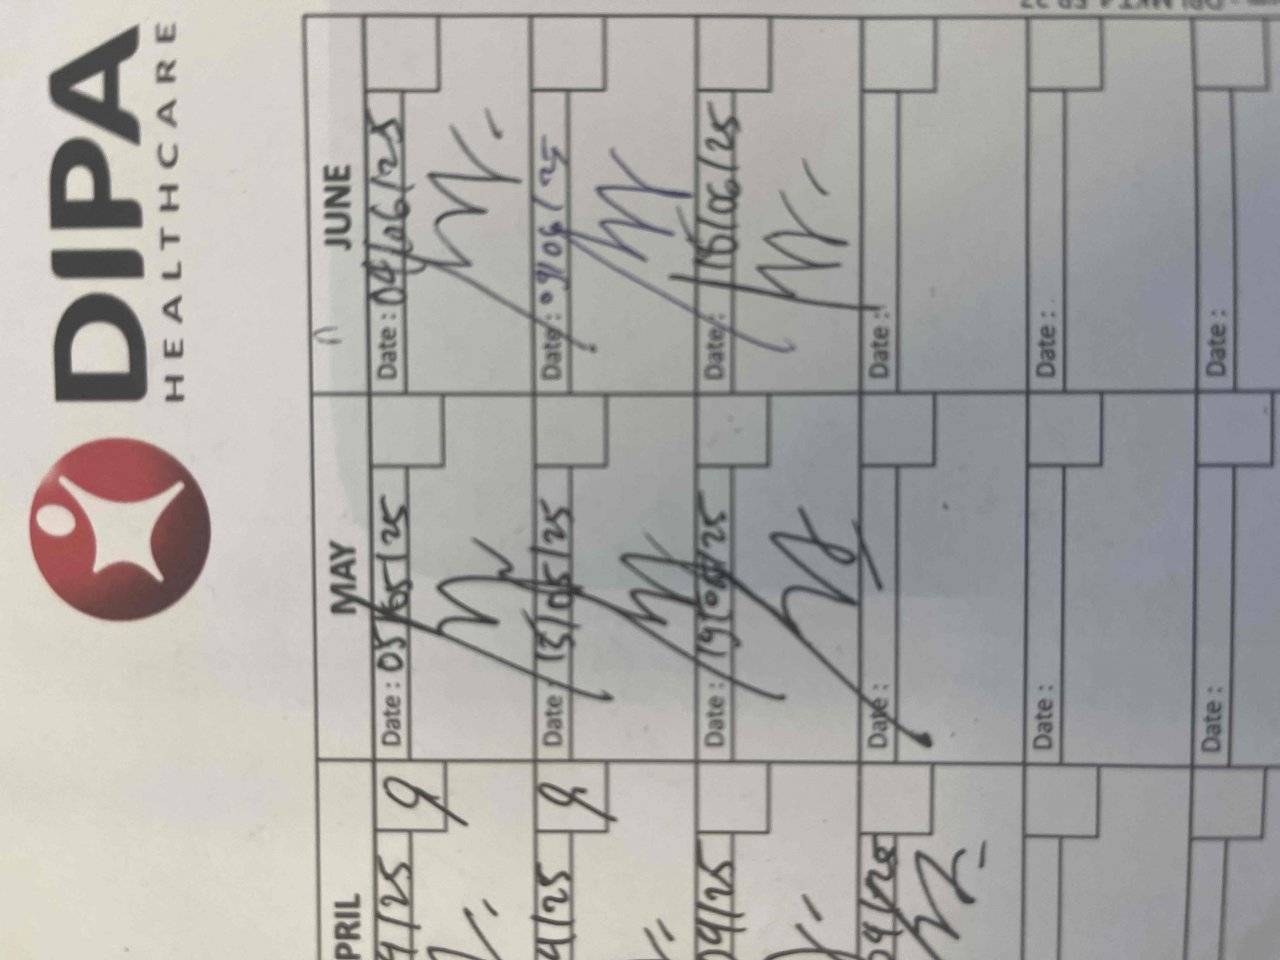 DIPA
HEALTHCARE
PRIL MAY JUNE
4/25 9 Date : 05/05/25 Date : 04/06/25
4/25 9 Date : 13/05/25 Date : 09/06/25
04/25 Date : 19/05/25 Date : 15/06/25
04/ Date : Date :
Date : Date :
Date : Date :